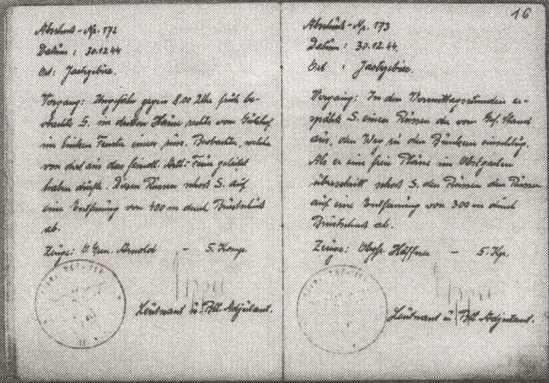 Abschuß-Nr. 172
Datum: 30.12.44
Ort: Jaszigebiee.
Vorgang: Ungefähr gegen 8.00 Uhr früh be-
S. im rechts von
im linken Fenster einen russ. Beobachter, welcher
von dort aus das feindl. Artl.-Feuer geleitet
haben dürfte. Diesen Russen schoß S. auf
eine Entfernung von 400 m durch Brustschuß
ab.
Zeuge: Arnold - 5. Komp.
Leutnant u. Btl. Adjutant.
16
Abschuß-Nr. 173
Datum: 30.12.44.
Ort:
Vorgang: In den Vormittagsstunden er-
spähte S. einen Russen der vom Stand
aus, den Weg zu den Bunkern einschlug.
Als er eine freie Fläche im Obstgarten
überschritt schoß S. den Russen den Russen
auf eine Entfernung von 300 m durch
Brustschuß ab.
Zeuge: Obgfr. Häffner - 5. Kp.
Leutnant u. Btl. Adjutant.